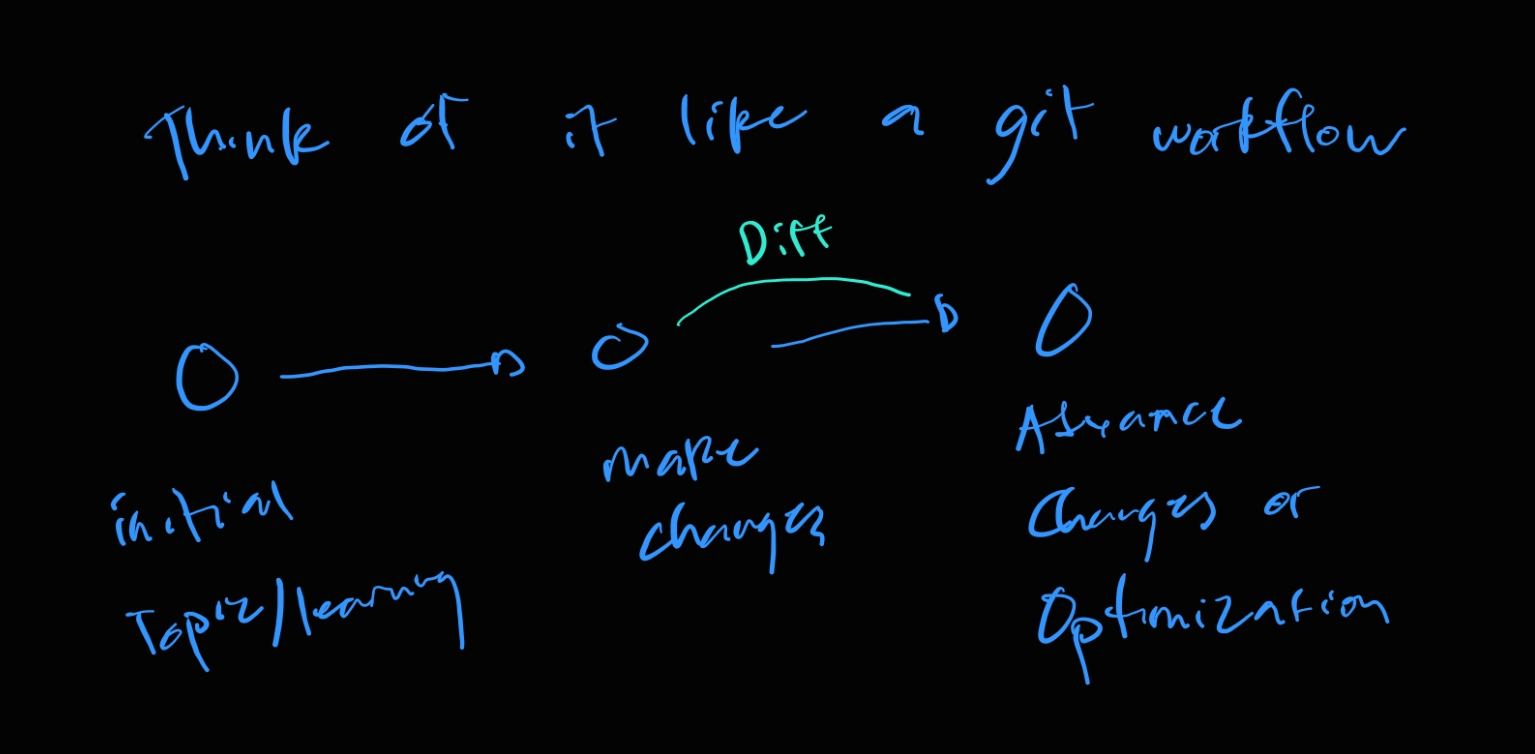 Think of it like a git workflow
Diff
initial
Topic/learning
make
changes
Advance
Changes or
Optimization